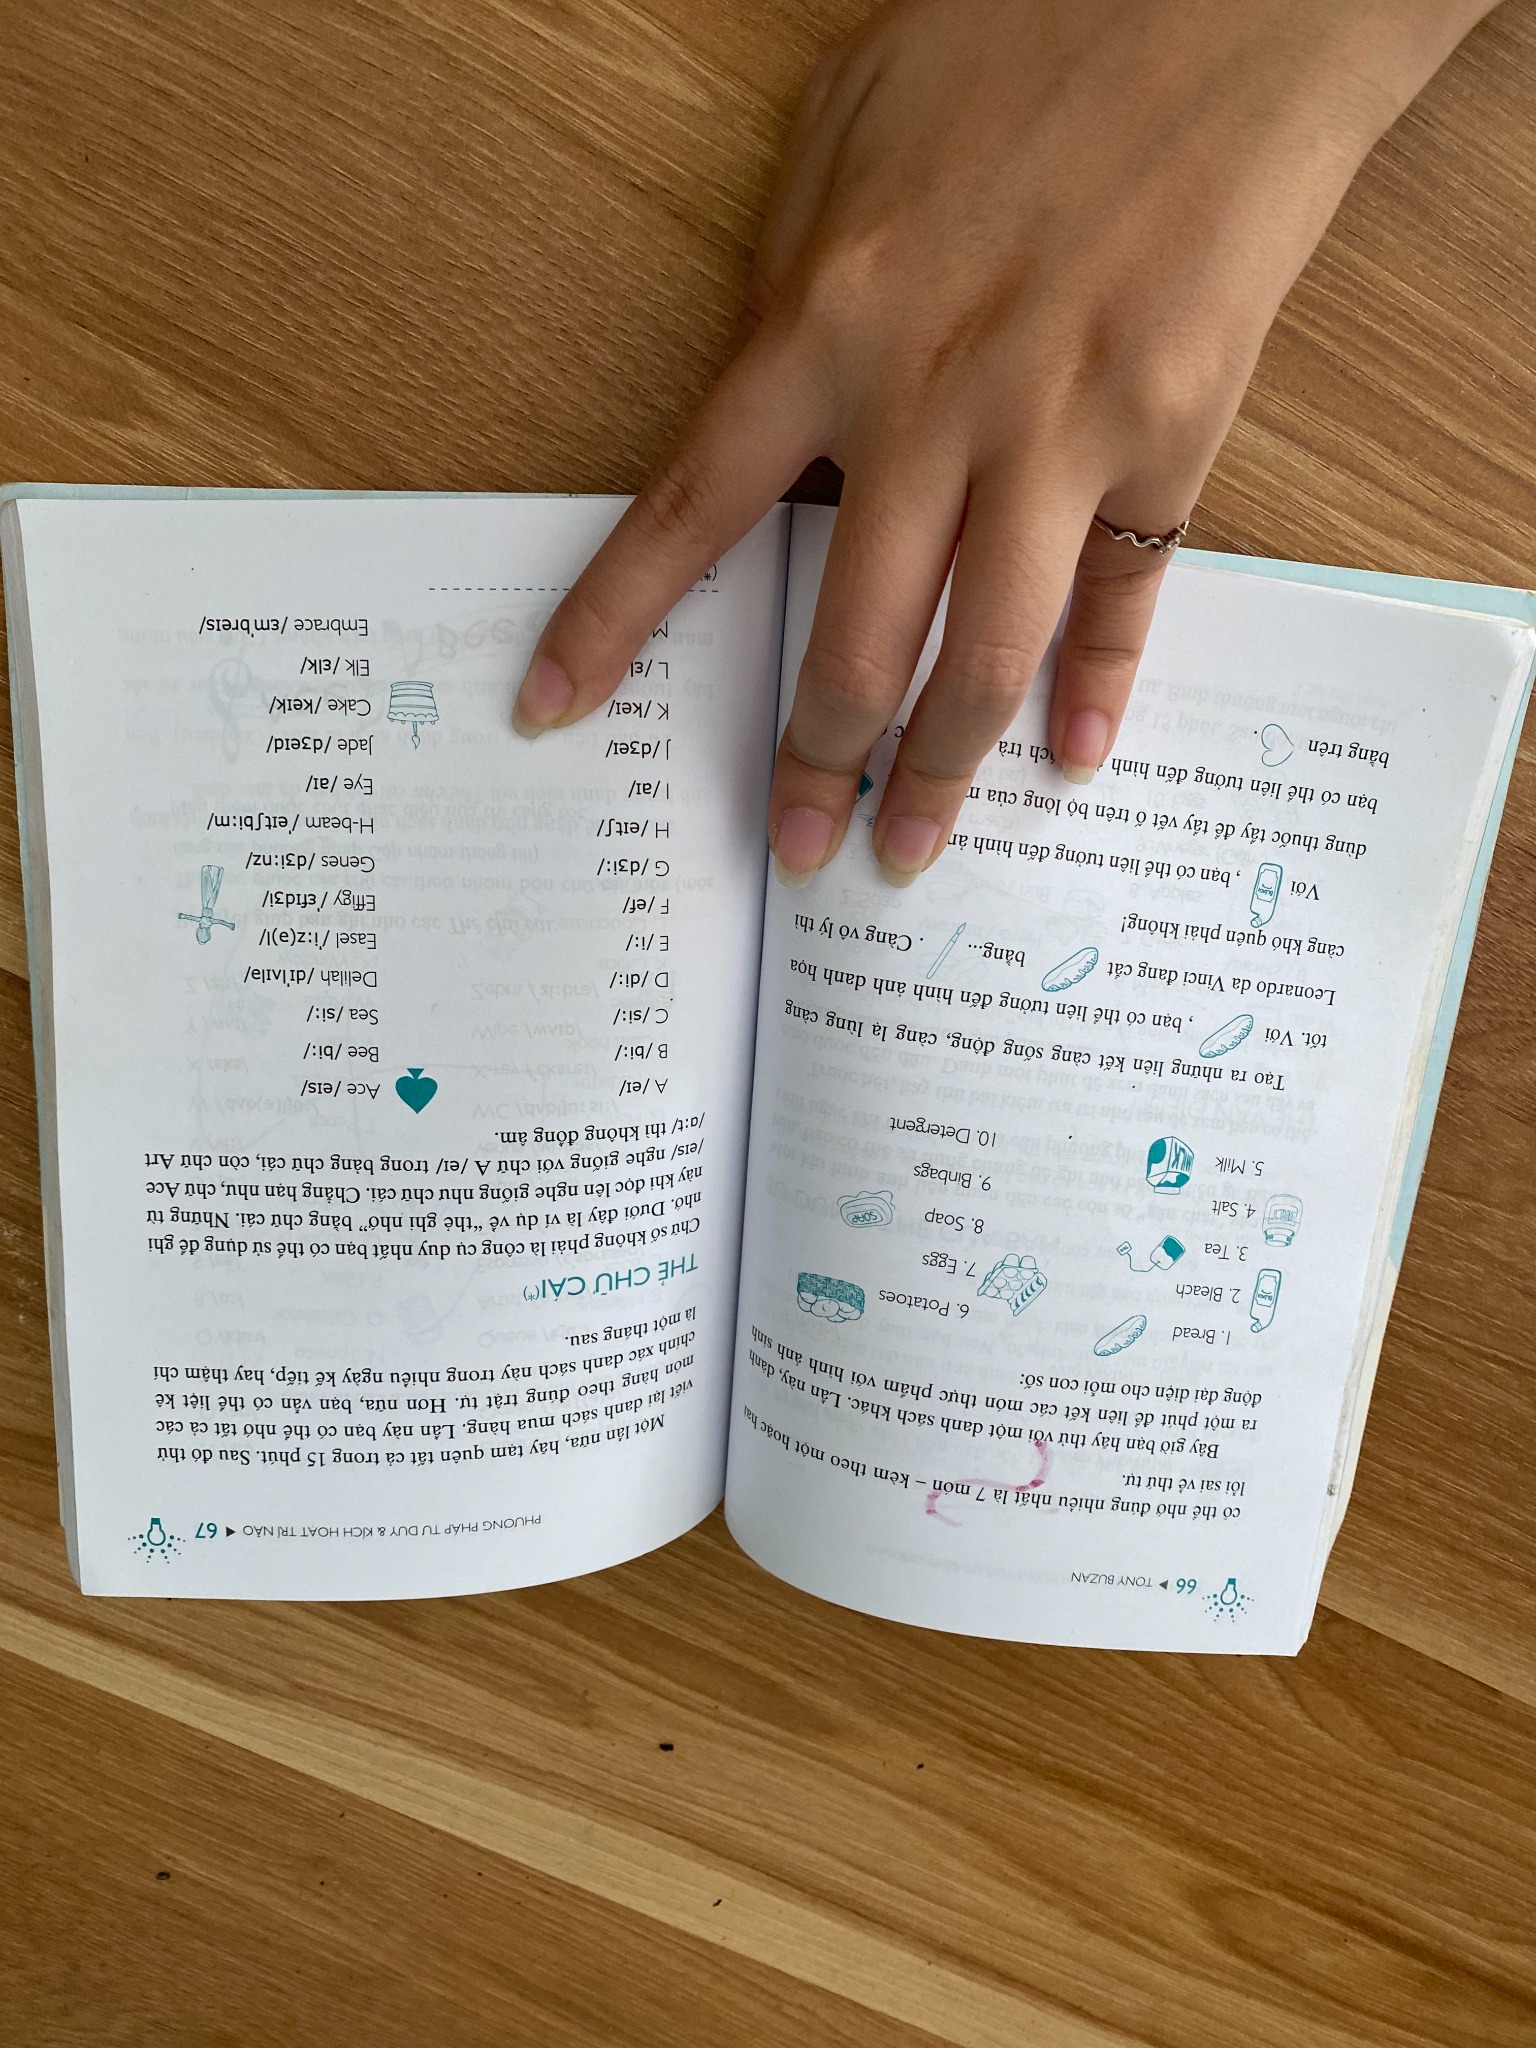 66 ▶ TONY BUZAN
có thể nhớ đúng nhiều nhất là 7 món – kèm theo một hoặc hai
lỗi sai về thứ tự.
Bây giờ bạn hãy thử với một danh sách khác. Lần này, dành
ra một phút để liên kết các món thực phẩm với hình ảnh sinh
động đại diện cho mỗi con số:
1. Bread
2. Bleach
BLEACH
3. Tea
4. Salt
SALT
5. Milk
MILK
6. Potatoes
7. Eggs
8. Soap
SOAP
9. Binbags
10. Detergent
Tạo ra những liên kết càng sống động, càng lạ lùng càng
tốt. Với , bạn có thể liên tưởng đến hình ảnh danh họa
Leonardo da Vinci đang cắt bằng... . Càng vô lý thì
càng khó quên phải không!
Với BLEACH , bạn có thể liên tưởng đến hình
dùng thuốc tẩy để tẩy vết ố trên bộ lông của
bạn có thể liên tưởng đến hình trà
bằng trên .
PHƯƠNG PHÁP TƯ DUY & KÍCH HOẠT TRÍ NÃO ◀ 67
Một lần nữa, hãy tạm quên tất cả trong 15 phút. Sau đó thử
viết lại danh sách mua hàng. Lần này bạn có thể nhớ tất cả các
món hàng theo đúng trật tự. Hơn nữa, bạn vẫn có thể liệt kê
chính xác danh sách này trong nhiều ngày kế tiếp, hay thậm chí
là một tháng sau.
THẺ CHỮ CÁI(*)
Chữ số không phải là công cụ duy nhất bạn có thể sử dụng để ghi
nhớ. Dưới đây là ví dụ về “thẻ ghi nhớ” bằng chữ cái. Những từ
này khi đọc lên nghe giống như chữ cái. Chẳng hạn như, chữ Ace
/eɪs/ nghe giống với chữ A /eɪ/ trong bảng chữ cái, còn chữ Art
/ɑ:t/ thì không đồng âm.
A /eɪ/ Ace /eɪs/
B /bi:/ Bee /bi:/
C /si:/ Sea /si:/
D /di:/ Delilah /dɪ'lʌɪlə/
E /i:/ Easel /'i:z(ə)l/
F /ef/ Effigy /'ɛfɪdʒi/
G /dʒi:/ Genes /dʒi:nz/
H /eɪtʃ/ H-beam /'eɪtʃbi:m/
I /aɪ/ Eye /aɪ/
J /dʒeɪ/ Jade /dʒeɪd/
K /keɪ/ Cake /keɪk/
L /ɛl Elk /ɛlk/
M Embrace /ɛm'breɪs/
(*